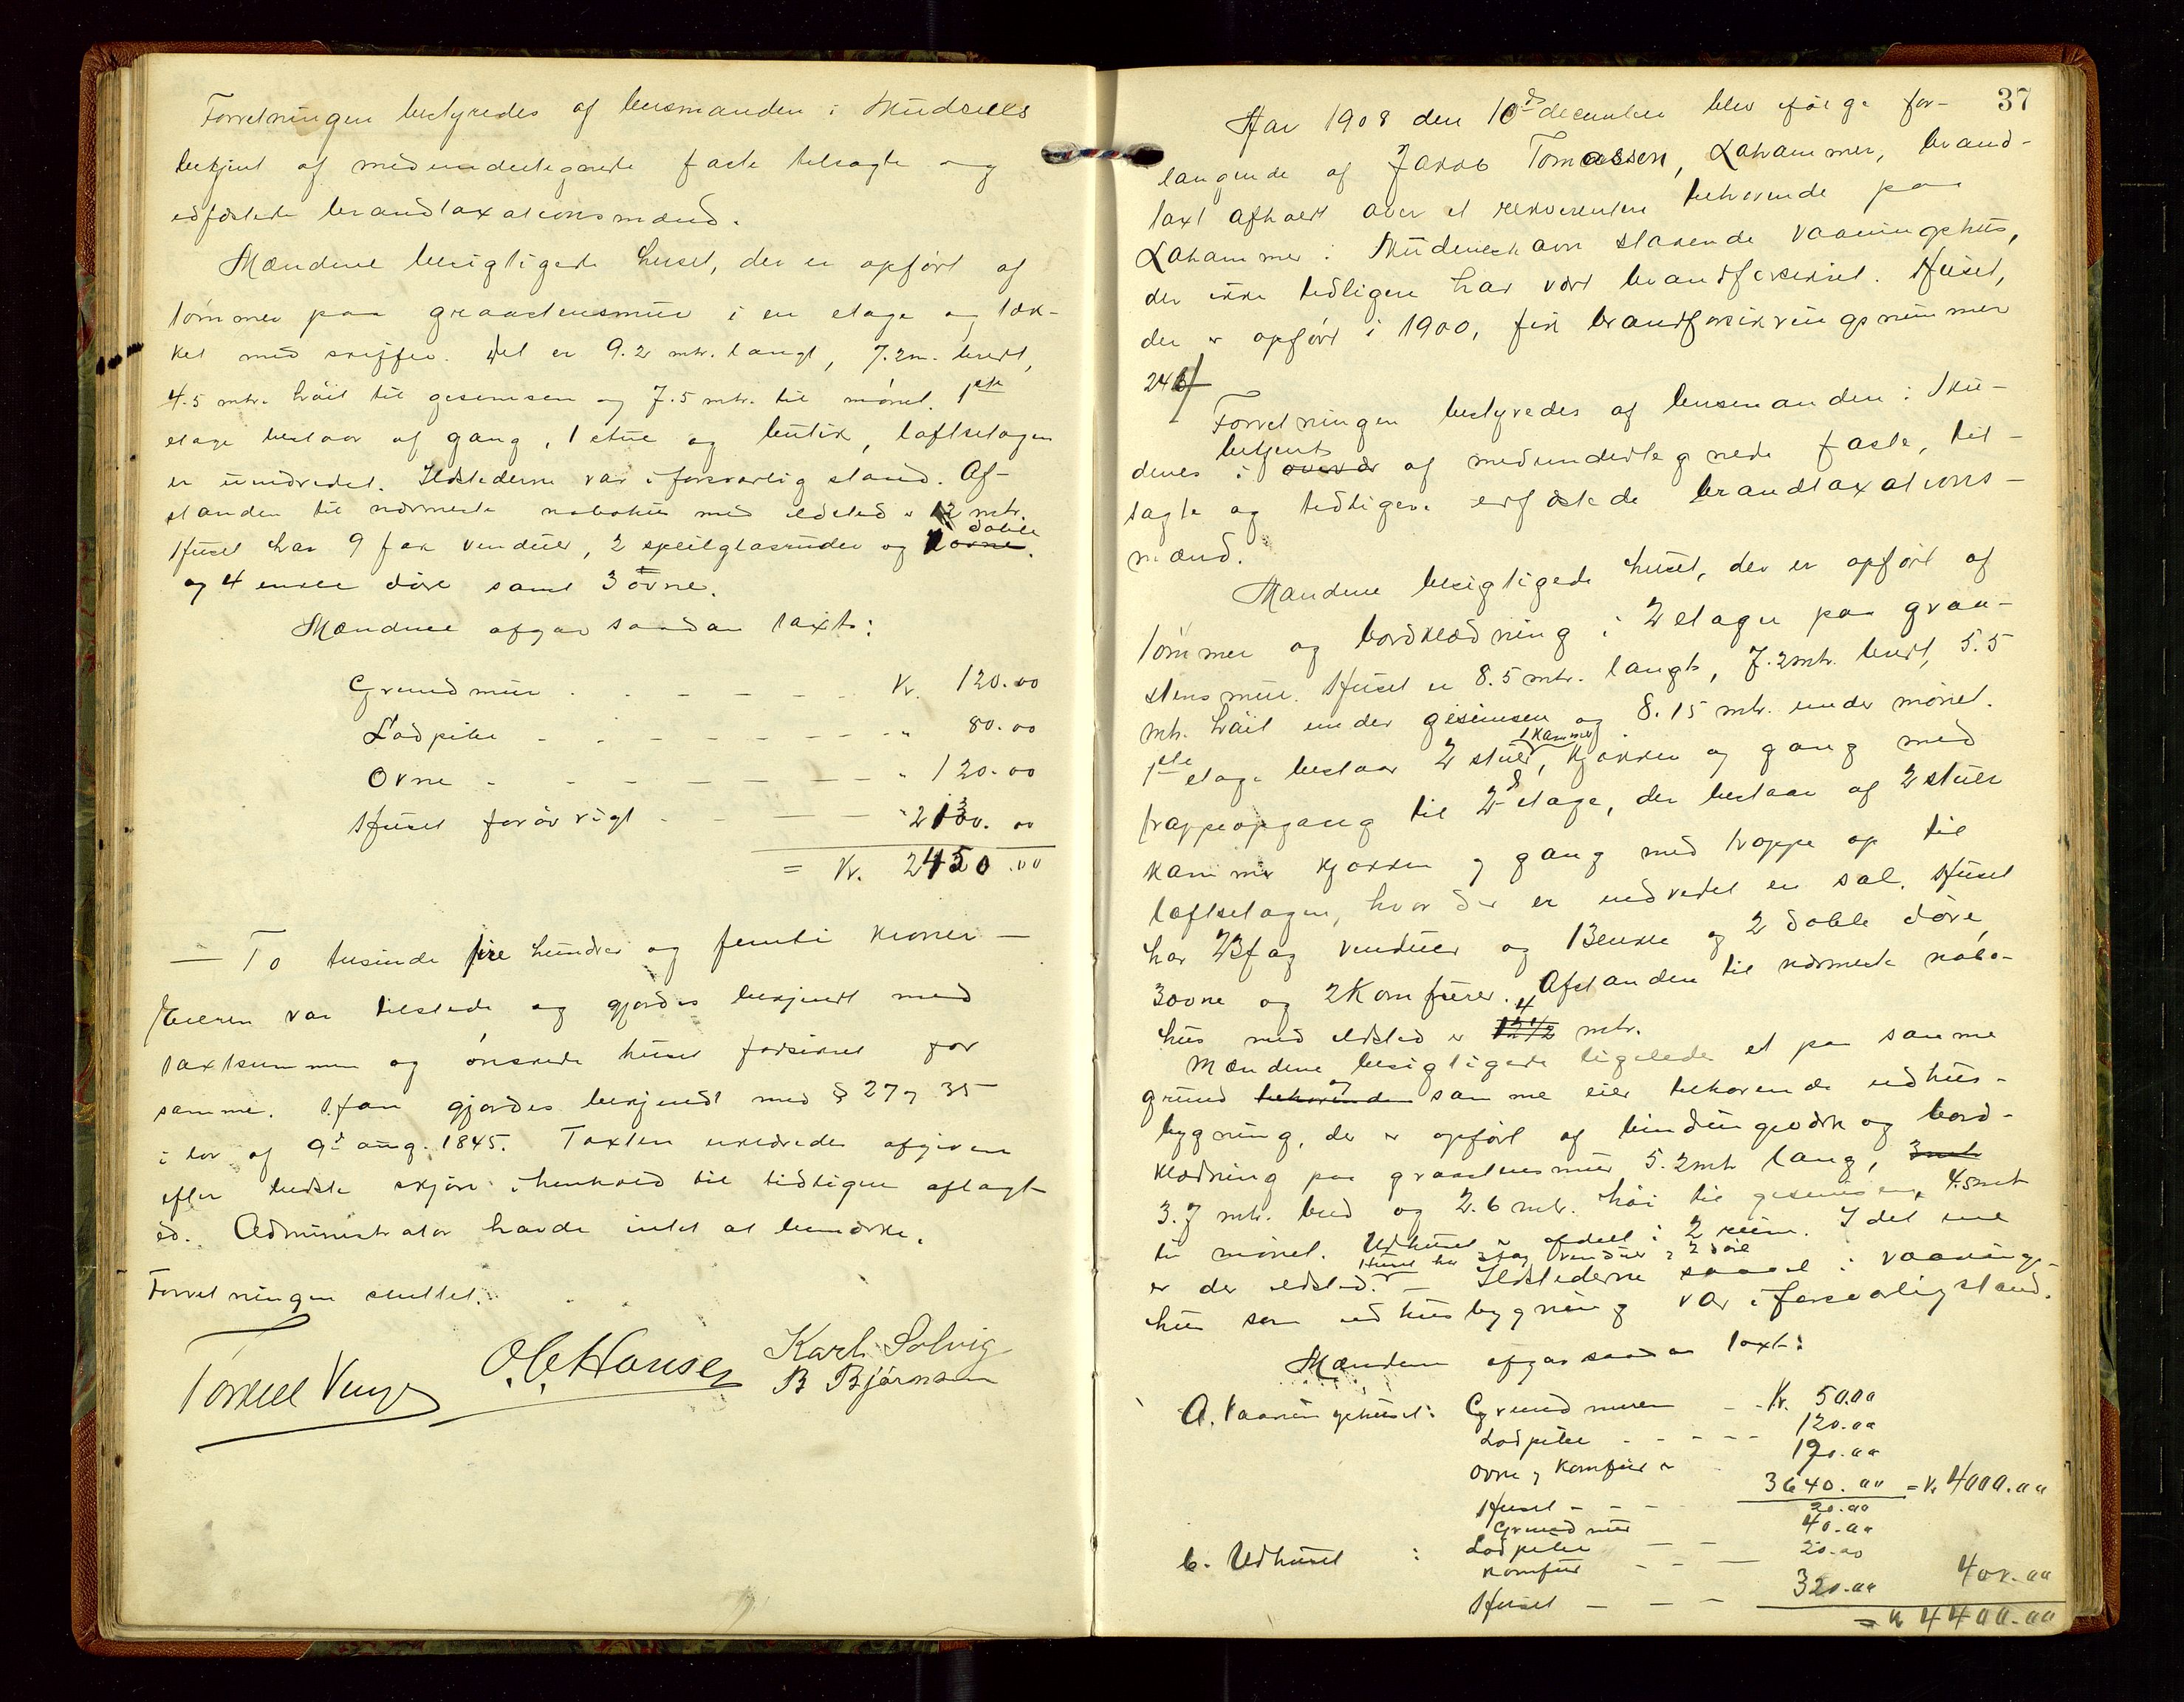 Forretningen bestyredes af lensmanden i Skudenes
betjent af medundertegnede faste tilsagte og
edfæstede brandtaxationsmænd.
Mændene besigtigede huset, der er opført af
tømmer paa graastensmur i en etage og tæk-
ket med skiffer. Det er 9.2 mtr. langt, 7.2 m. bredt,
4.5 mtr. høit til gesimsen og 7.5 mtr. til mønet. 1ste
etage bestaar af gang, 1 stue og butik, loftsetagen
er uindredet. Ildstederne var i forsvarlig stand. Af-
standen til nærmeste nabohus med ildsted er 12 mtr.
Huset har 9 fag vinduer, 2 speilglasruder og doble
og 4 enkle døre samt 3 ovne.
Mændene afgav saadan taxt:
Grundmur . . - - - - Kr. 120.00
Ladpibe - - - - - - - " 80.00
Ovne - - - - - - - " 120.00
Huset forøvrigt - - - - " 2130.00
= Kr. 2450.00
— To tusinde fire hundre og femti kroner —
Eieren var tilstede og gjordes bekjendt med
taxtsummen og ønskede huset forsikret for
samme. Han gjordes bekjendt med § 27 og 35
i lov af 9d aug. 1845. Taxten erklæredes afgiven
efter bedste skjøn i henhold til tidligere aflagt
ed. Administrator havde intet at bemærke.
Forretningen sluttet.
Torkel Vinge O. C. Hansen Karl Solvig
B Bjørnsen
37
Aar 1908 den 10d december blev ifølge for-
langende af Jakob Tomassen, Lahammer, brand-
taxt afholdt over et rekvirenten tilhørende paa
Lahammer i Skudeneshavn staaende vaaningshus,
der ikke tidligere har vært brandforsikret. Huset,
der er opført i 1900, fik brandforsikringsnummer
246
Forretningen bestyredes af lensmanden i Sku-
betjent
denes i overvær af medundertegnede faste, til-
sagte og tidligere edfæstede brandtaxations-
mænd.
Mændene besigtigede huset, der er opført af
tømmer og bordklædning i 2 etager paa graa-
stensmur. Huset er 8.5 mtr. langt, 7.2 mtr. bredt, 5.5
mtr. høit under gesimsen og 8.15 mtr. under mønet.
1 kammer
1ste etage bestaar 2 stuer, kjøkken og gang med
trappeopgang til 2d etage, der bestaar af 2 stuer
kammer kjøkken og gang med trappe op til
loftsetagen, hvor der er indredet en sal. Huset
har 23 fag vinduer og 13 enkle og 2 doble døre,
3 ovne og 2 komfurer. Afstanden til nærmeste nabo-
4
hus med ildsted er 12 1/2 mtr.
Mændene besigtigede ligeledes et paa samme
grund tilhørende og samme eier tilhørende udhus-
bygning, der er opført af bindingsværk og bord-
klædning paa graastensmur 5.2 mtr lang, 3 mtr
3.7 mtr. bred og 2.6 mtr. høi til gesimsen, 4.5 mtr
til mønet. Udhuset er afdelt i 2 rum. I det ene
Huset har 3 fag vinduer og 2 døre
er der ildsted. – Ildstederne saavel i vaanings-
hus som udhusbygning var i forsvarlig stand.
Mændene afgav saadan taxt:
A. Vaaningshuset: Grundmuren - - Kr. 50.00
Ladpibe - - - - - 120.00
Ovne og komfurer 190.00
Huset - - - 3640.00 = Kr 4000.00
Grundmur 20.00
b. Udhuset : Ladpibe - - 40.00
Komfur - - - 20.00
Huset - - - 320.00 400.00
= Kr 4400.00